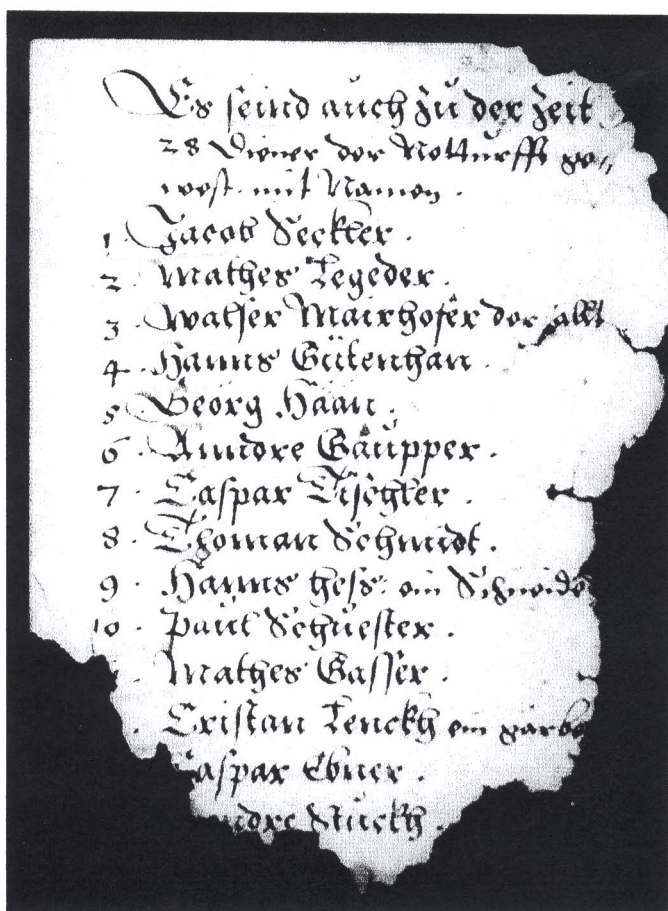 Es seind auch zu der Zeit
28 Diener der Notturfft ge//
west mit Namen .
1 . Jacob Seckler .
2 . Mathes Tegeder .
3 . Walser Mairhofer der allt
4 . Hanns Gütenhan .
5 . Geörg Haan .
6 . Anndre Gaupper .
7 . Caspar Tischler .
8 . Thoman Schmidt .
9 . Hanns hess : ein Schneide
10 . Paul Schuester .
Mathes Gasser .
. Cristan Lenckh ein garbe
Caspar Ebner .
ndre Stuckh .